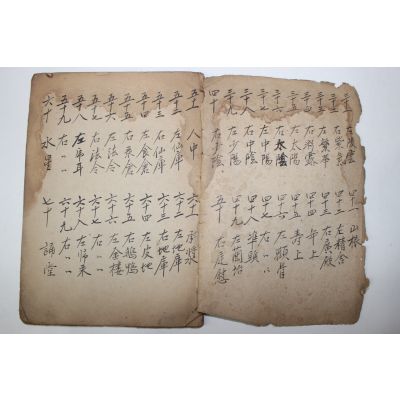 左凌雲 四十一 山根
右紫氣 四十二 左精舍
左繁 四十三 右廣殿
三十四 右彩霞 四十四 年上
三十五 左太陽 四十五 寿上
三十六 右太陰 四十六 左顴骨
三十七 左中陽 四十七 右〃〃
三十八 右中陰 四十八 準頭
三十九 左少陽 四十九 左
四十 右少陰 五十 右廷慰
五十一 人中 六十一 承漿水
五十二 左仙庫 六十二 左地庫
五十三 右仙庫 六十三 右地庫
五十四 左食倉 六十四 左皮地
五十五 右食倉 六十五 右鵝鴨
五十六 左法令 六十六 左金樓
五十七 右法令 六十七 右〃〃
五十八 左吊耳 六十八 左歸来
五十九 右〃〃 六十九 右〃〃
六十 水星 七十 誦堂